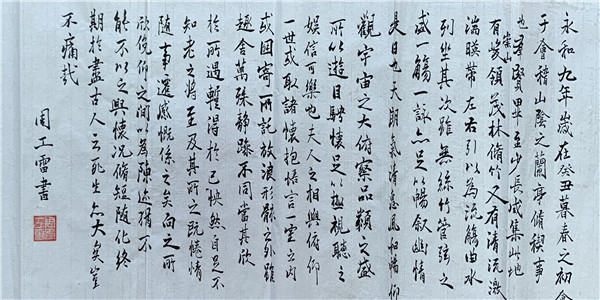 永和九年歲在癸丑暮春之初會
于會稽山陰之蘭亭脩禊事
也群賢畢至少長咸集此地
有崇山峻領茂林脩竹又有清流激
湍暎帶左右引以為流觴曲水
列坐其次雖無絲竹管弦之
盛一觴一詠亦足以暢敘幽情
是日也天朗氣清惠風和暢仰
觀宇宙之大俯察品類之盛
所以遊目騁懷足以極視聽之
娛信可樂也夫人之相與俯仰
一世或取諸懷抱悟言一室之內
或因寄所託放浪形骸之外雖
趣舍萬殊靜躁不同當其欣
於所遇暫得於己怏然自足不
知老之將至及其所之既惓情
隨事遷感慨係之矣向之所
欣俛仰之間以為陳迹猶不
能不以之興懷況脩短隨化終
期於盡古人云死生亦大矣豈
不痛哉
周工雷書